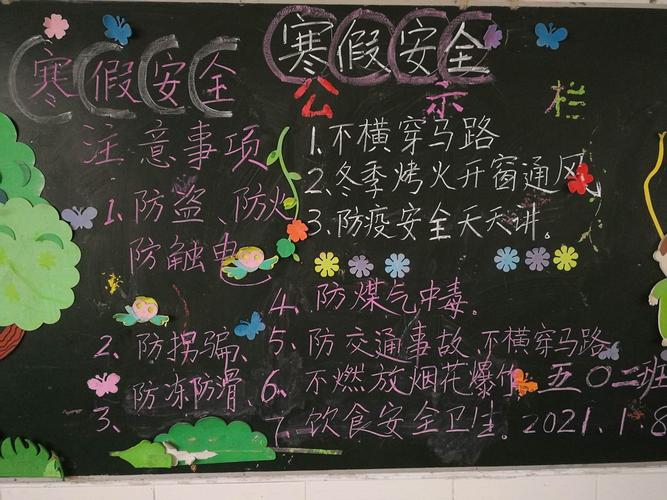 寒假安全
注意事项
1、防盗、防火
防触电
2、防拐骗、
防冻防滑、
3、
寒假安全
公示栏
1.不横穿马路
2、冬季烤火开窗通风
3、防疫安全天天讲。
4、防煤气中毒。
5、防交通事故、不横穿马路
6、不燃放烟花爆竹
7、饮食安全卫生。
五〇二班
2021.1.8